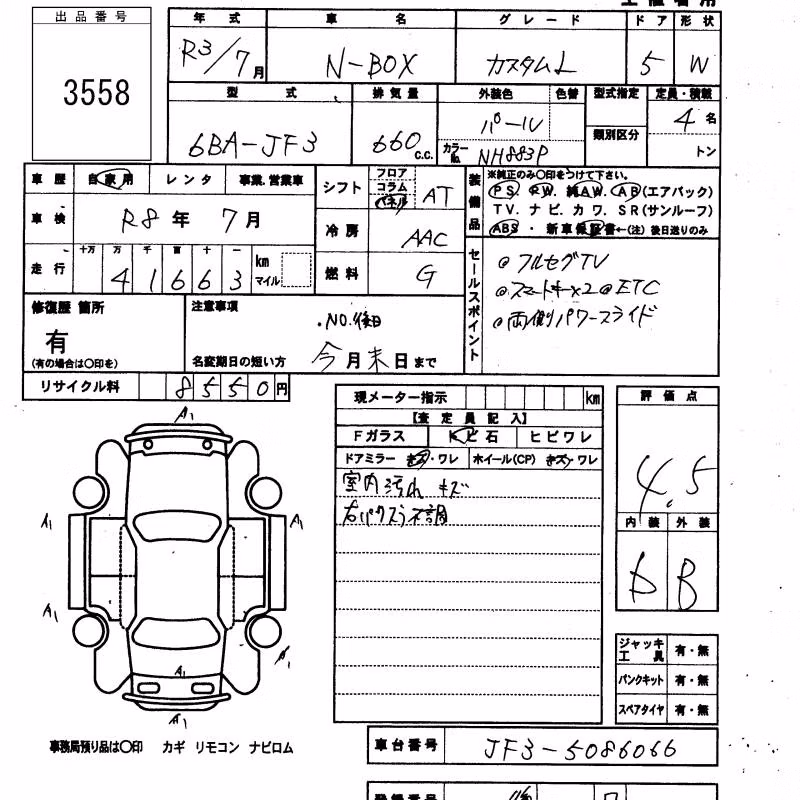 出品番号
3558
年式 車名 グレード ドア 形状
R3/7月 N-BOX カスタムL 5 W
型式 排気量 外装色 色替 型式指定 定員・積載
6BA-JF3 660 C.C. パール 類別区分 4名
カラーNo. NH883P トン
車歴 自家用 レンタ 事業.営業車
車検 R8年 7月
走行 十万 万 千 百 十 一
4 1 6 6 3 km マイル
シフト フロア コラム パネル AT
冷房 AAC
燃料 G
装備品
※純正のみ〇印をつけて下さい。
PS PW. 純AW. AB(エアバック)
TV. ナビ. カワ. SR(サンルーフ)
ABS ・ 新車保証書←(注) 後日送りのみ
セールスポイント
◎フルセグTV
◎スマートキーx2◎ETC
◎両側パワースライド
修復歴 箇所
有
(有の場合は〇印を)
注意事項
.NO.後日
名変期日の短い方 今月末日まで
リサイクル料 8550円
現メーター指示 km
【査定員記入】
Fガラス トビ石 ヒビワレ
ドアミラー キズ・ワレ ホイール(CP) キズ・ワレ
室内汚れ キズ
右パワスラ不調
評価点
4.5
内装 外装
b B
A1
A1
A1
A1
A1
A1
ジャッキ工具 有・無
パンクキット 有・無
スペアタイヤ 有・無
事務局預り品は〇印 カギ リモコン ナビロム
車台番号 JF3-5086066